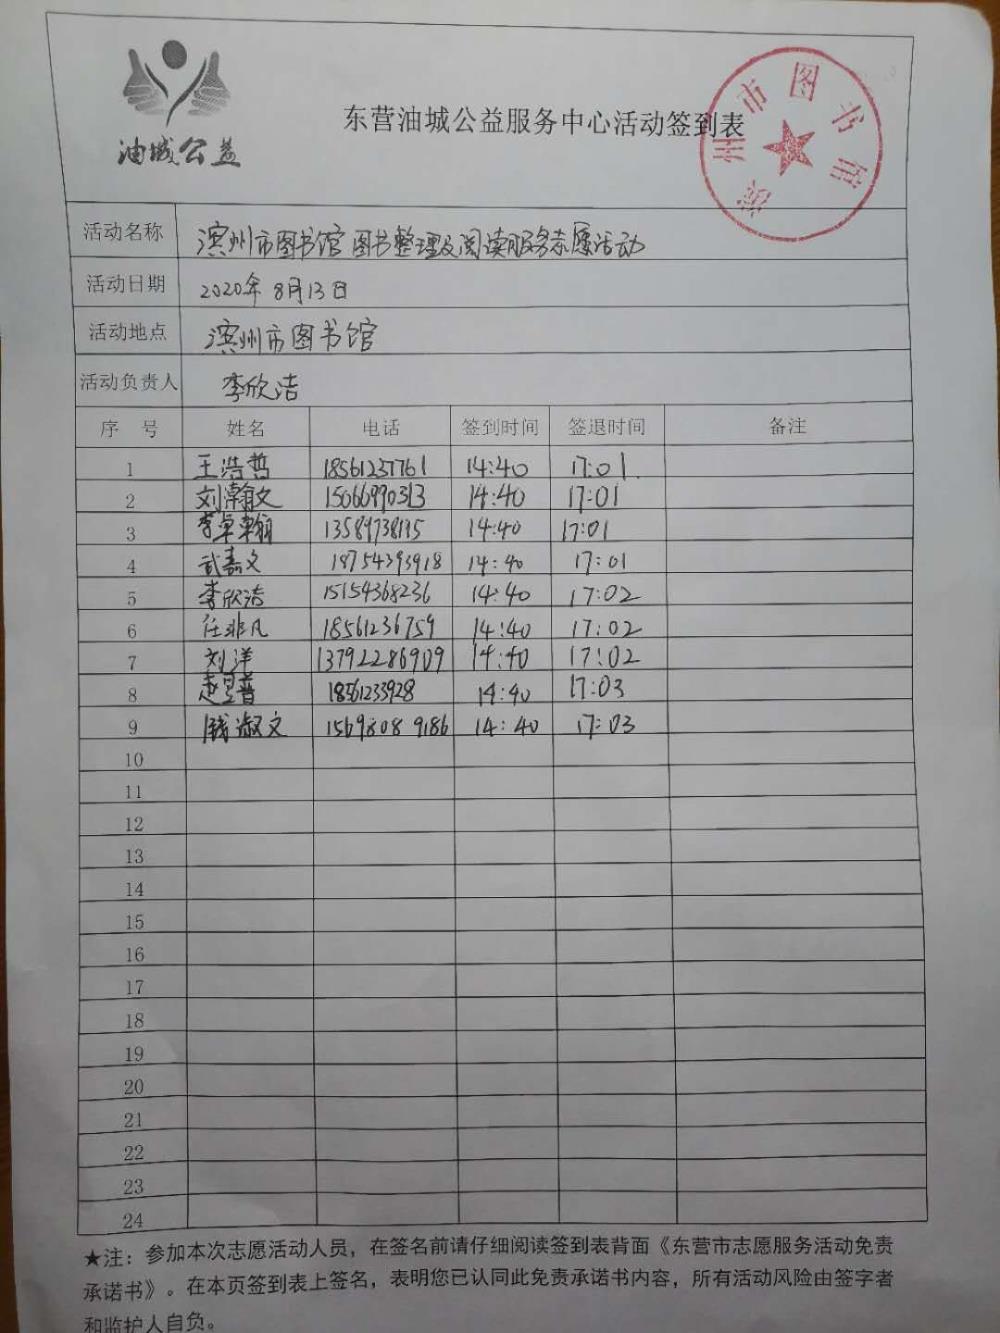 油城公益
东营油城公益服务中心活动签到表
滨州市图书馆
活动名称 滨州市图书馆图书整理及阅读服务志愿活动
活动日期 2020年8月13日
活动地点 滨州市图书馆
活动负责人 李欣洁
序号 姓名 电话 签到时间 签退时间 备注
1 王浩哲 18561237761 14:40 17:01
2 刘瀚文 15066990313 14:40 17:01
3 李卓翰 14:40 17:01
4 武嘉文 18754393918 14:40 17:01
5 李欣洁 15154368236 14:40 17:02
6 任非凡 18561236759 14:40 17:02
7 刘洋 13792286909 14:40 17:02
8 18561233928 14:40 17:03
9 钱淑文 15698089186 14:40 17:03
10
11
12
13
14
15
16
17
18
19
20
21
22
23
24
★注：参加本次志愿活动人员，在签名前请仔细阅读签到表背面《东营市志愿服务活动免责
承诺书》。在本页签到表上签名，表明您已认同此免责承诺书内容，所有活动风险由签字者
和监护人自负。